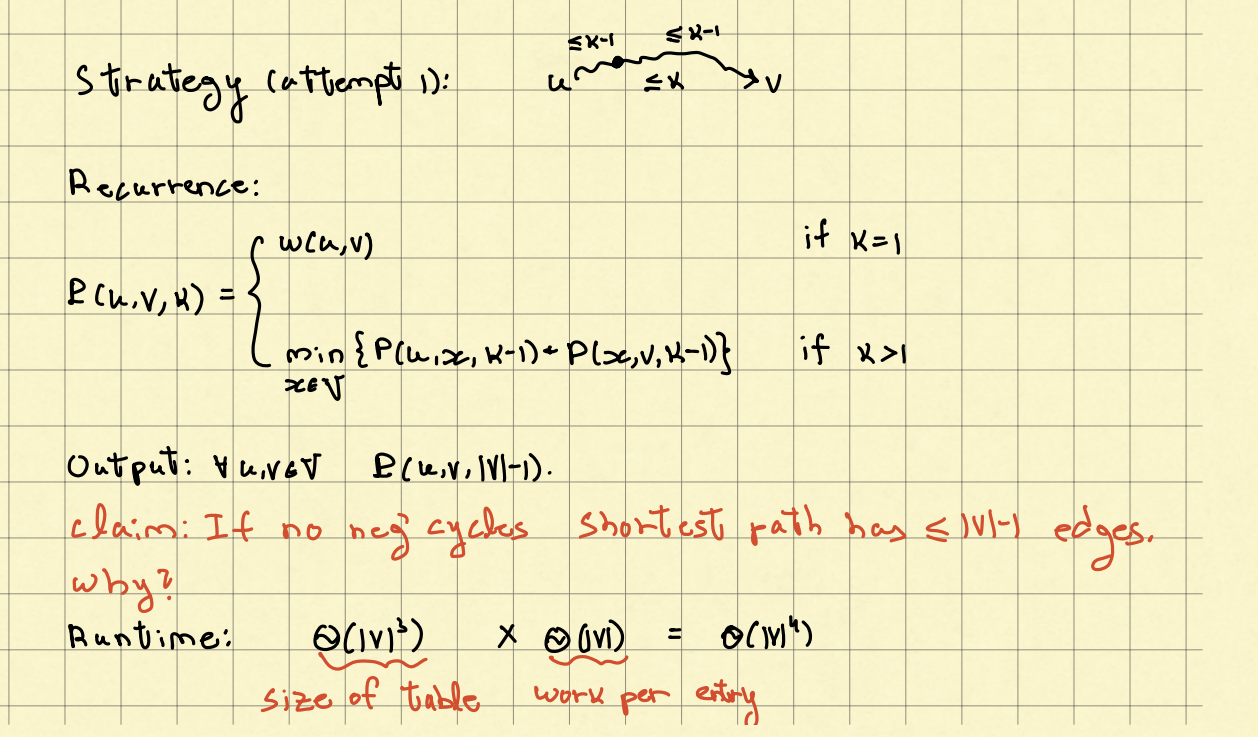 ≤k-1 ≤k-1
Strategy (attempt 1): u ≤k v
Recurrence:
w(u,v) if k=1
P(u,v,k) = {
min {P(u,x,k-1) + P(x,v,k-1)} if k>1
x∈V
Output: ∀ u,v∈V P(u,v,|V|-1).
claim: If no neg cycles shortest path has ≤ |V|-1 edges.
why?
Runtime: Θ(|V|³) × Θ(|V|) = Θ(|V|⁴)
size of table work per entry